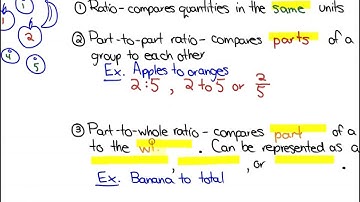 ① Ratio- compares quantities in the same units
② Part-to-part ratio- compares parts of a
group to each other
Ex. Apples to oranges
2:5, 2 to 5 or 2/5
③ Part-to-whole ratio- compares part of a
to the w. Can be represented as a
, , or .
Ex. Banana to total
1
1
2
4
5